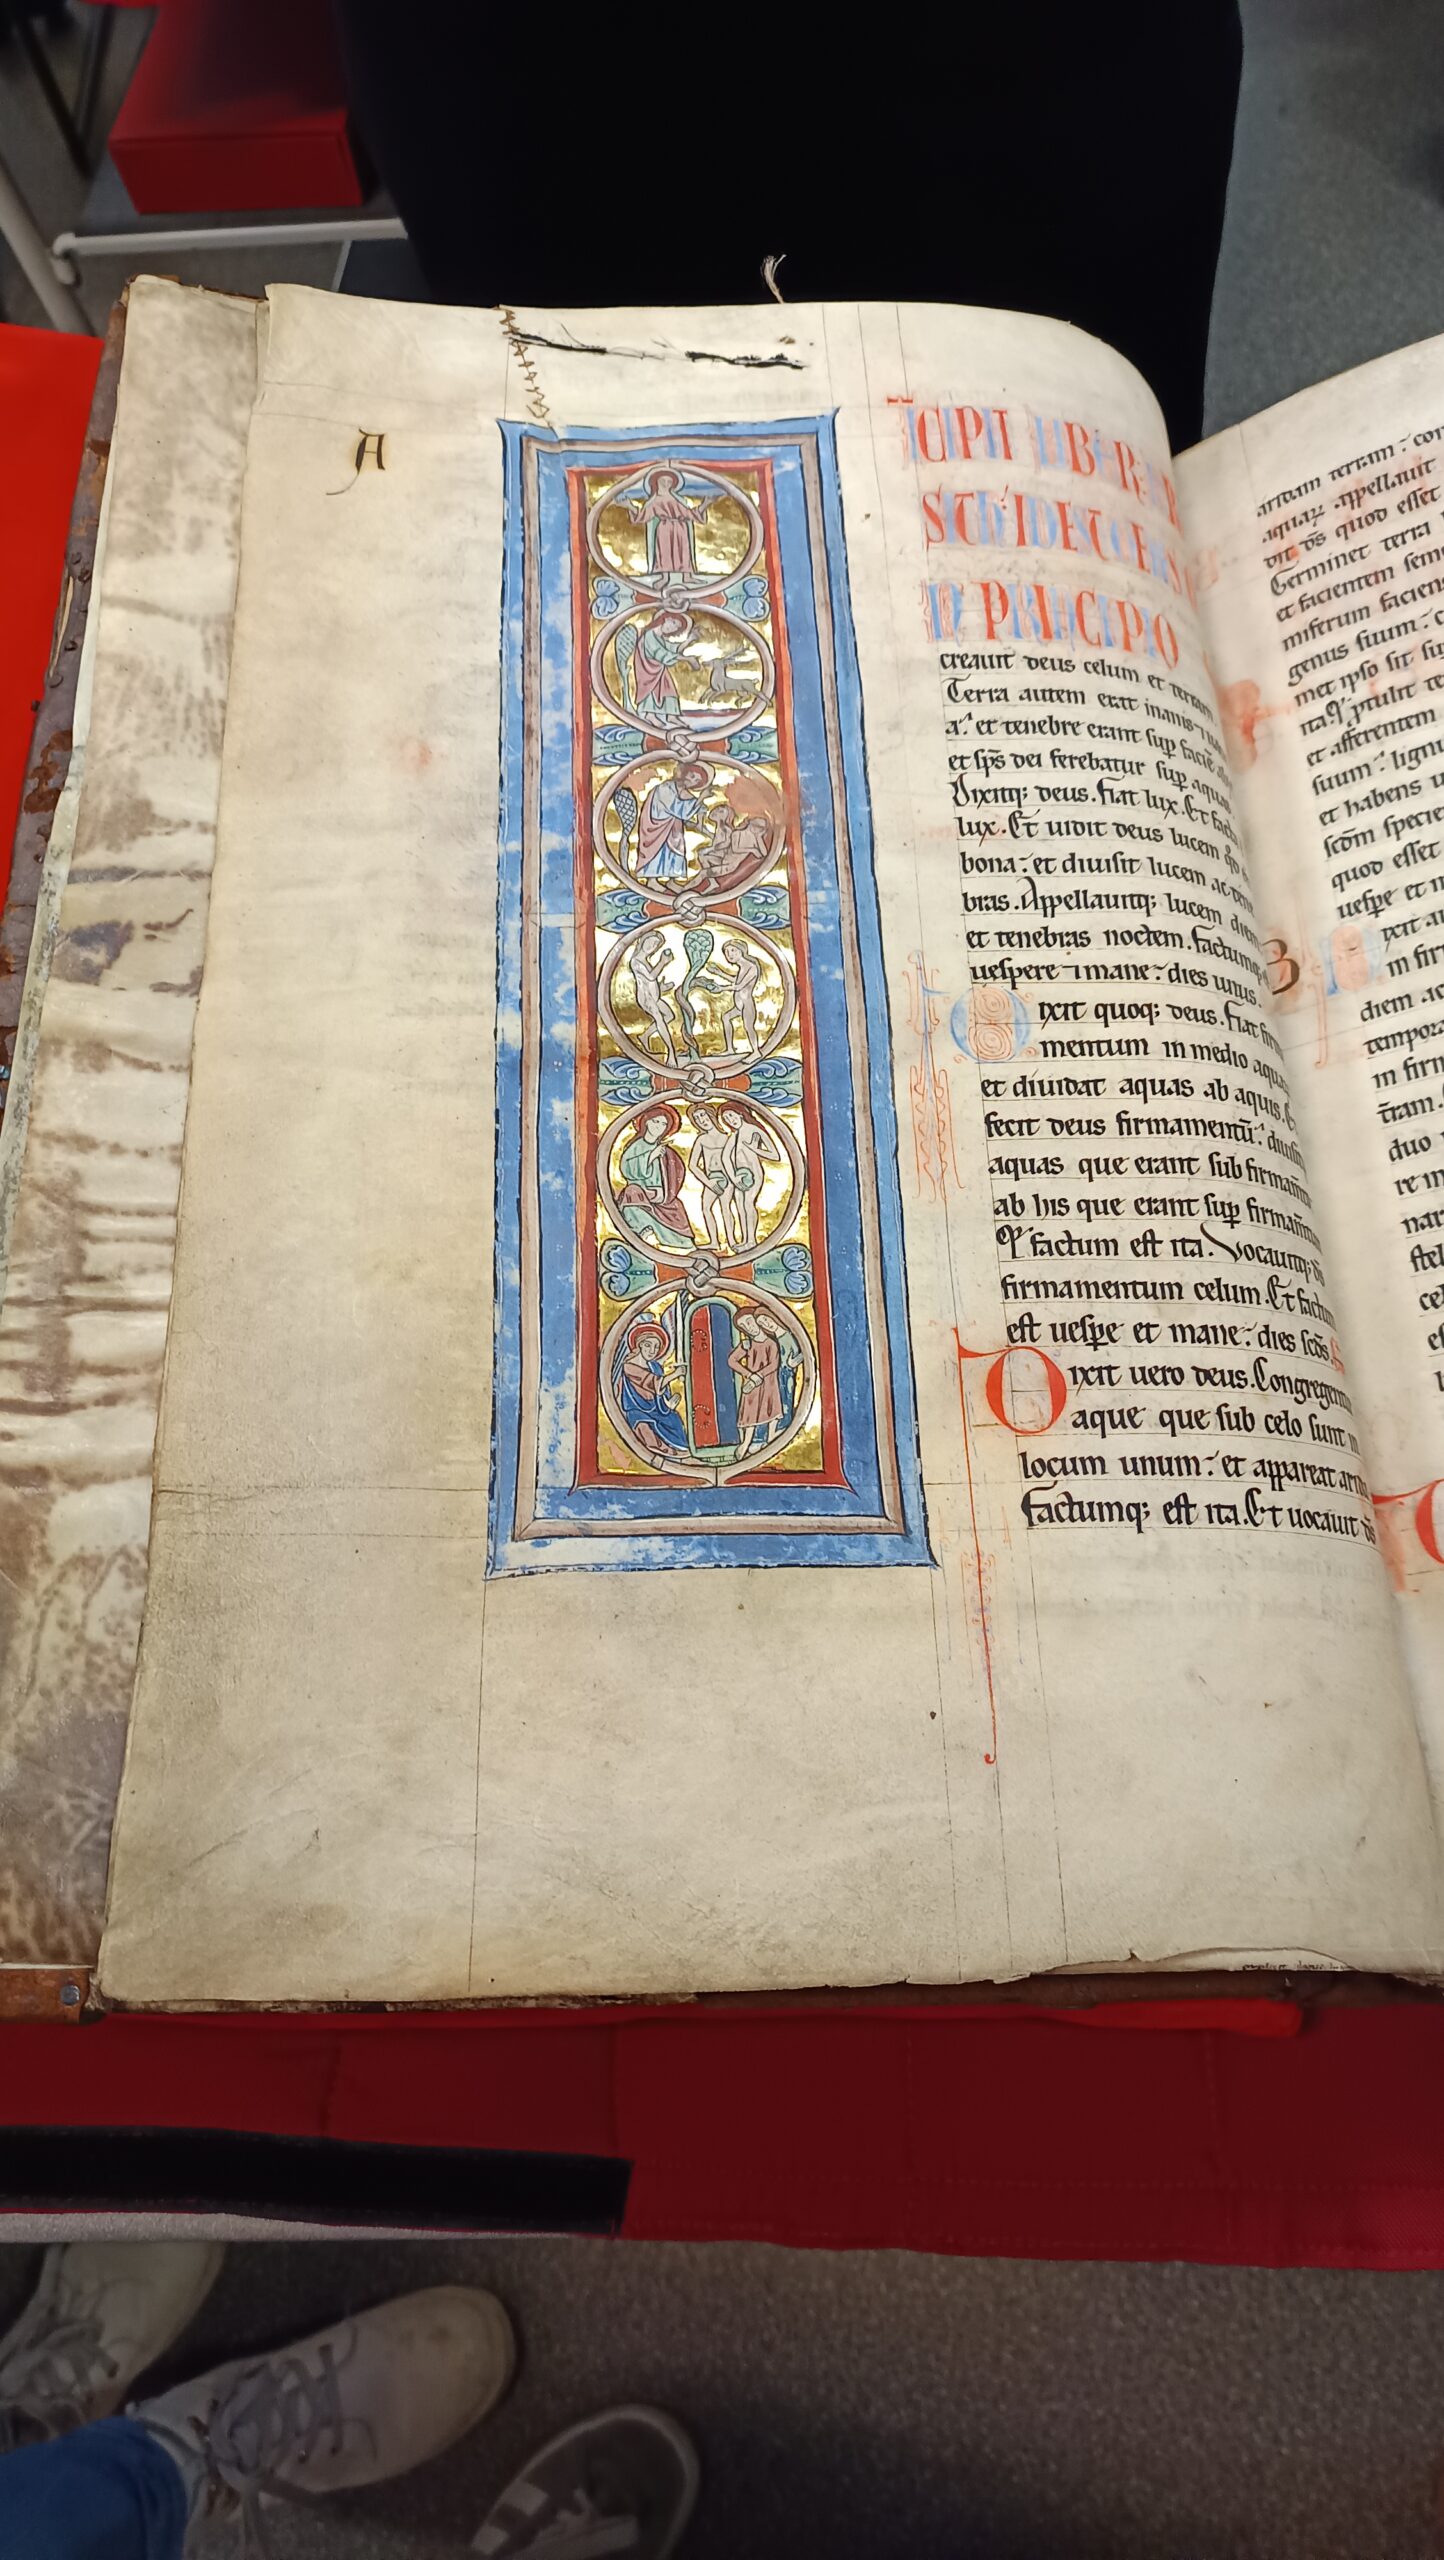 A
ĪCIPIT LIBER
IN PRINCIPIO
creauit deus celum et terram
Terra autem erat inanis ⁊
a. et tenebre erant sup̱ faciē
et sp̄s dei ferebatur sup̱ aquas
Dixitq; deus. fiat lux. Et facta
lux. Et uidit deus lucem qđ
bona: et diuisit lucem ac tene
bras. Appellauitq; lucem diem
et tenebras noctem. factumq;
uespere ⁊ mane: dies unus.
Dixit quoq; deus. fiat firma
mentum in medio aquaꝝ
et diuidat aquas ab aquis. Et
fecit deus firmamentū: diuisitq;
aquas que erant sub firmam̄to
ab his que erant sup̱ firmam̄tum
Et factum est ita. Vocauitq; ds̄
firmamentum celum. Et factum
est uesp̱e et mane: dies scd̄s.
Dixit uero deus. Congregentur
aque que sub celo sunt in
locum unum: et appareat arida
factumq; est ita. Et uocauit ds̄
B
aridam terram: con
aquaꝝ appellauit
dit ds̄ quod esset
Germinet terra
et facientem sem
miferum faciens
genus suum: c
met ipso sit sup
ita. Et p̱tulit te
et afferentem
suum: lignu
et habens u
scdm̄ specie
quod esset
uesp̱e et m
Dixit au
in fir
diem ac
tempora
in firm
tr̄am.
duo
re m
nar
stel
cel
es